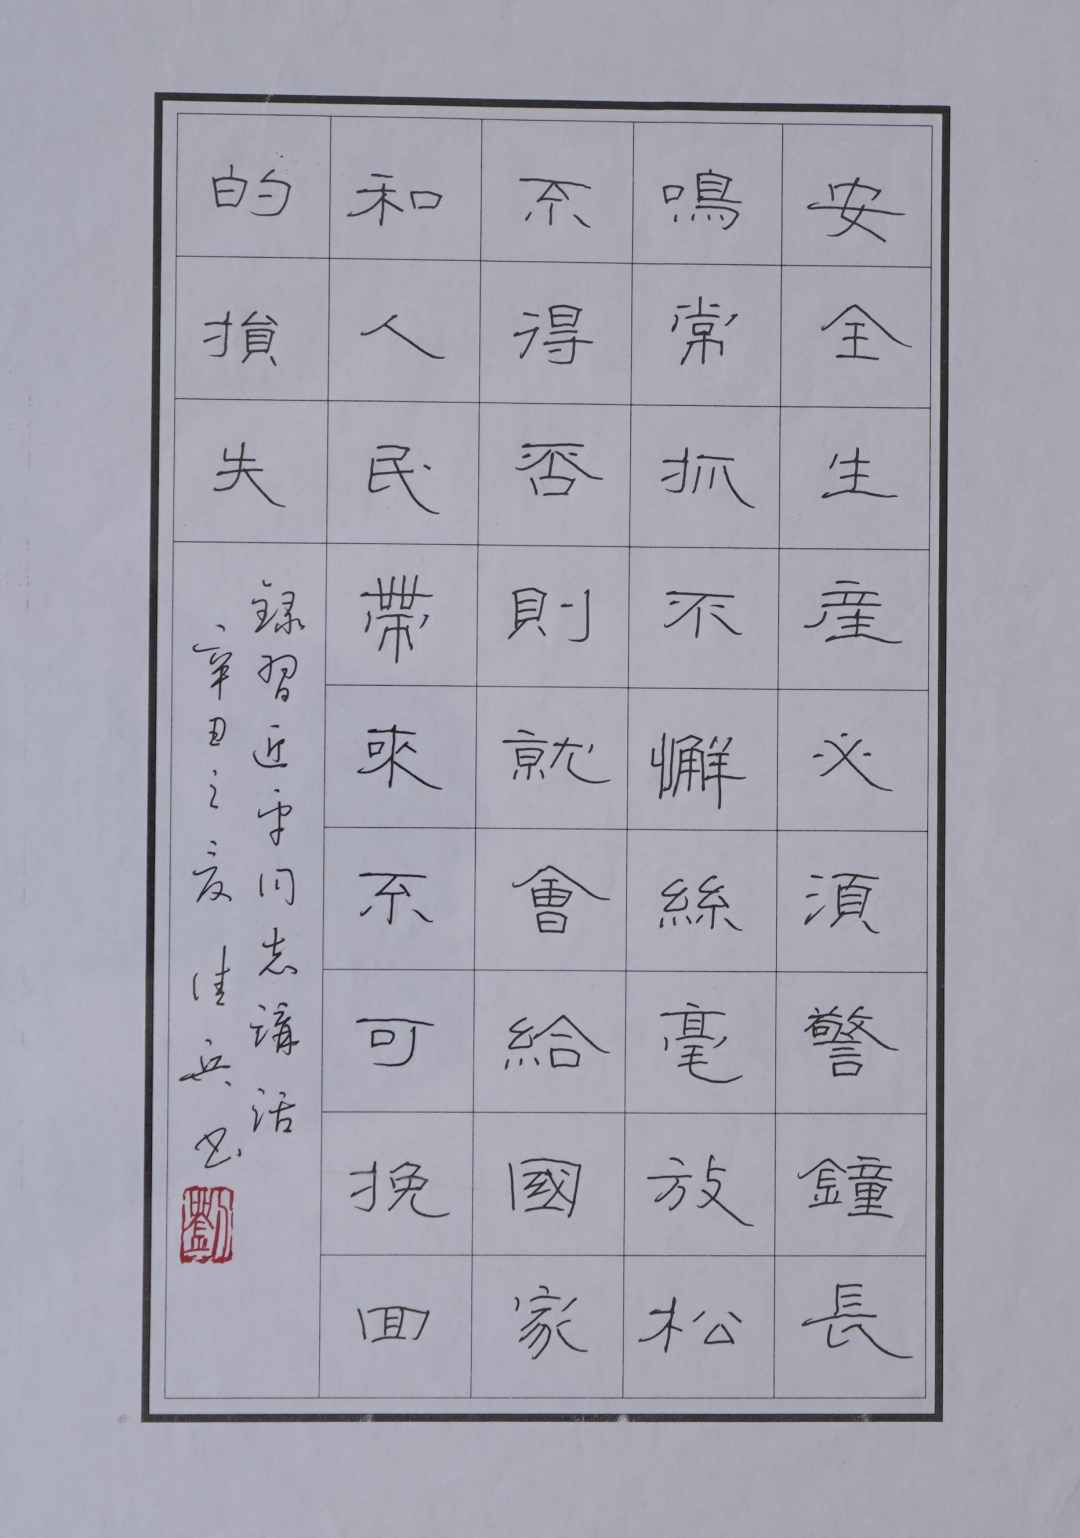 安全生産必須警鐘長
鳴常抓不懈絲毫放松
不得否則就會給國家
和人民帶來不可挽回
的損失
録習近平同志講話
辛丑之夏佳兵书
劉